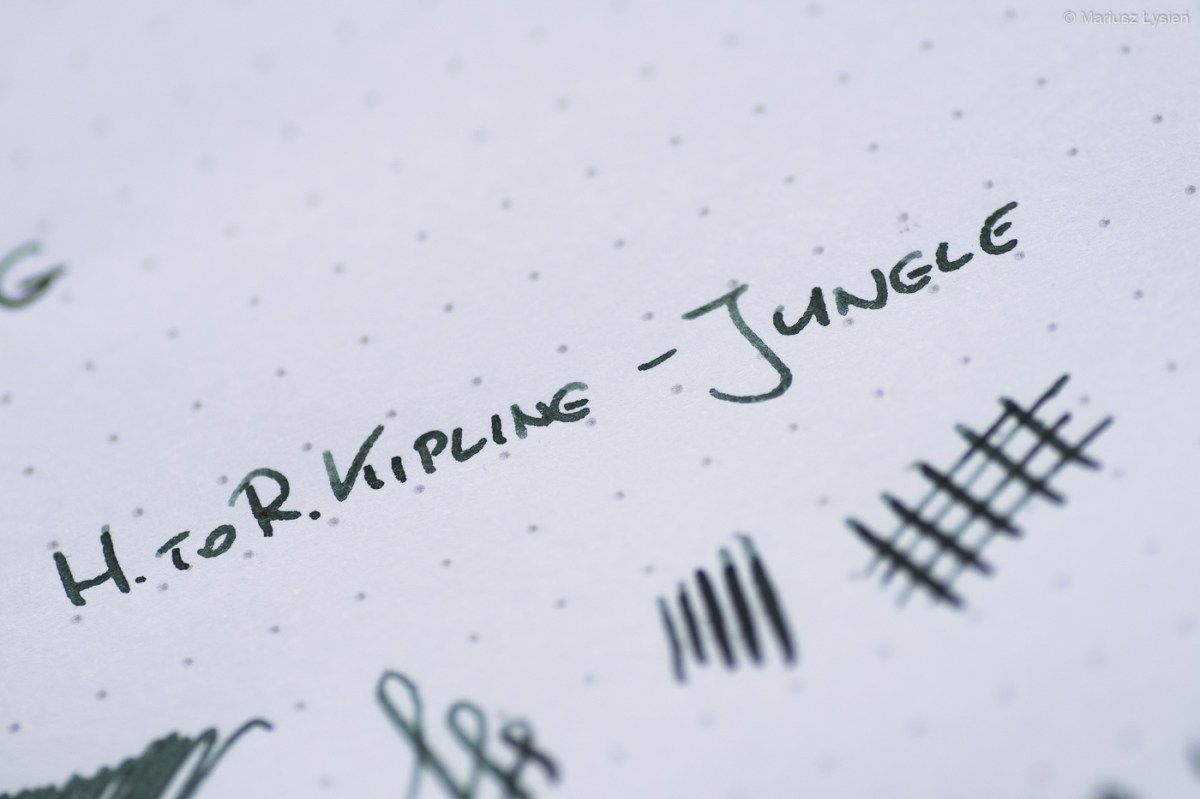 © Mariusz Łysień
G
H. to R. KIIPLINE - JUNGLE